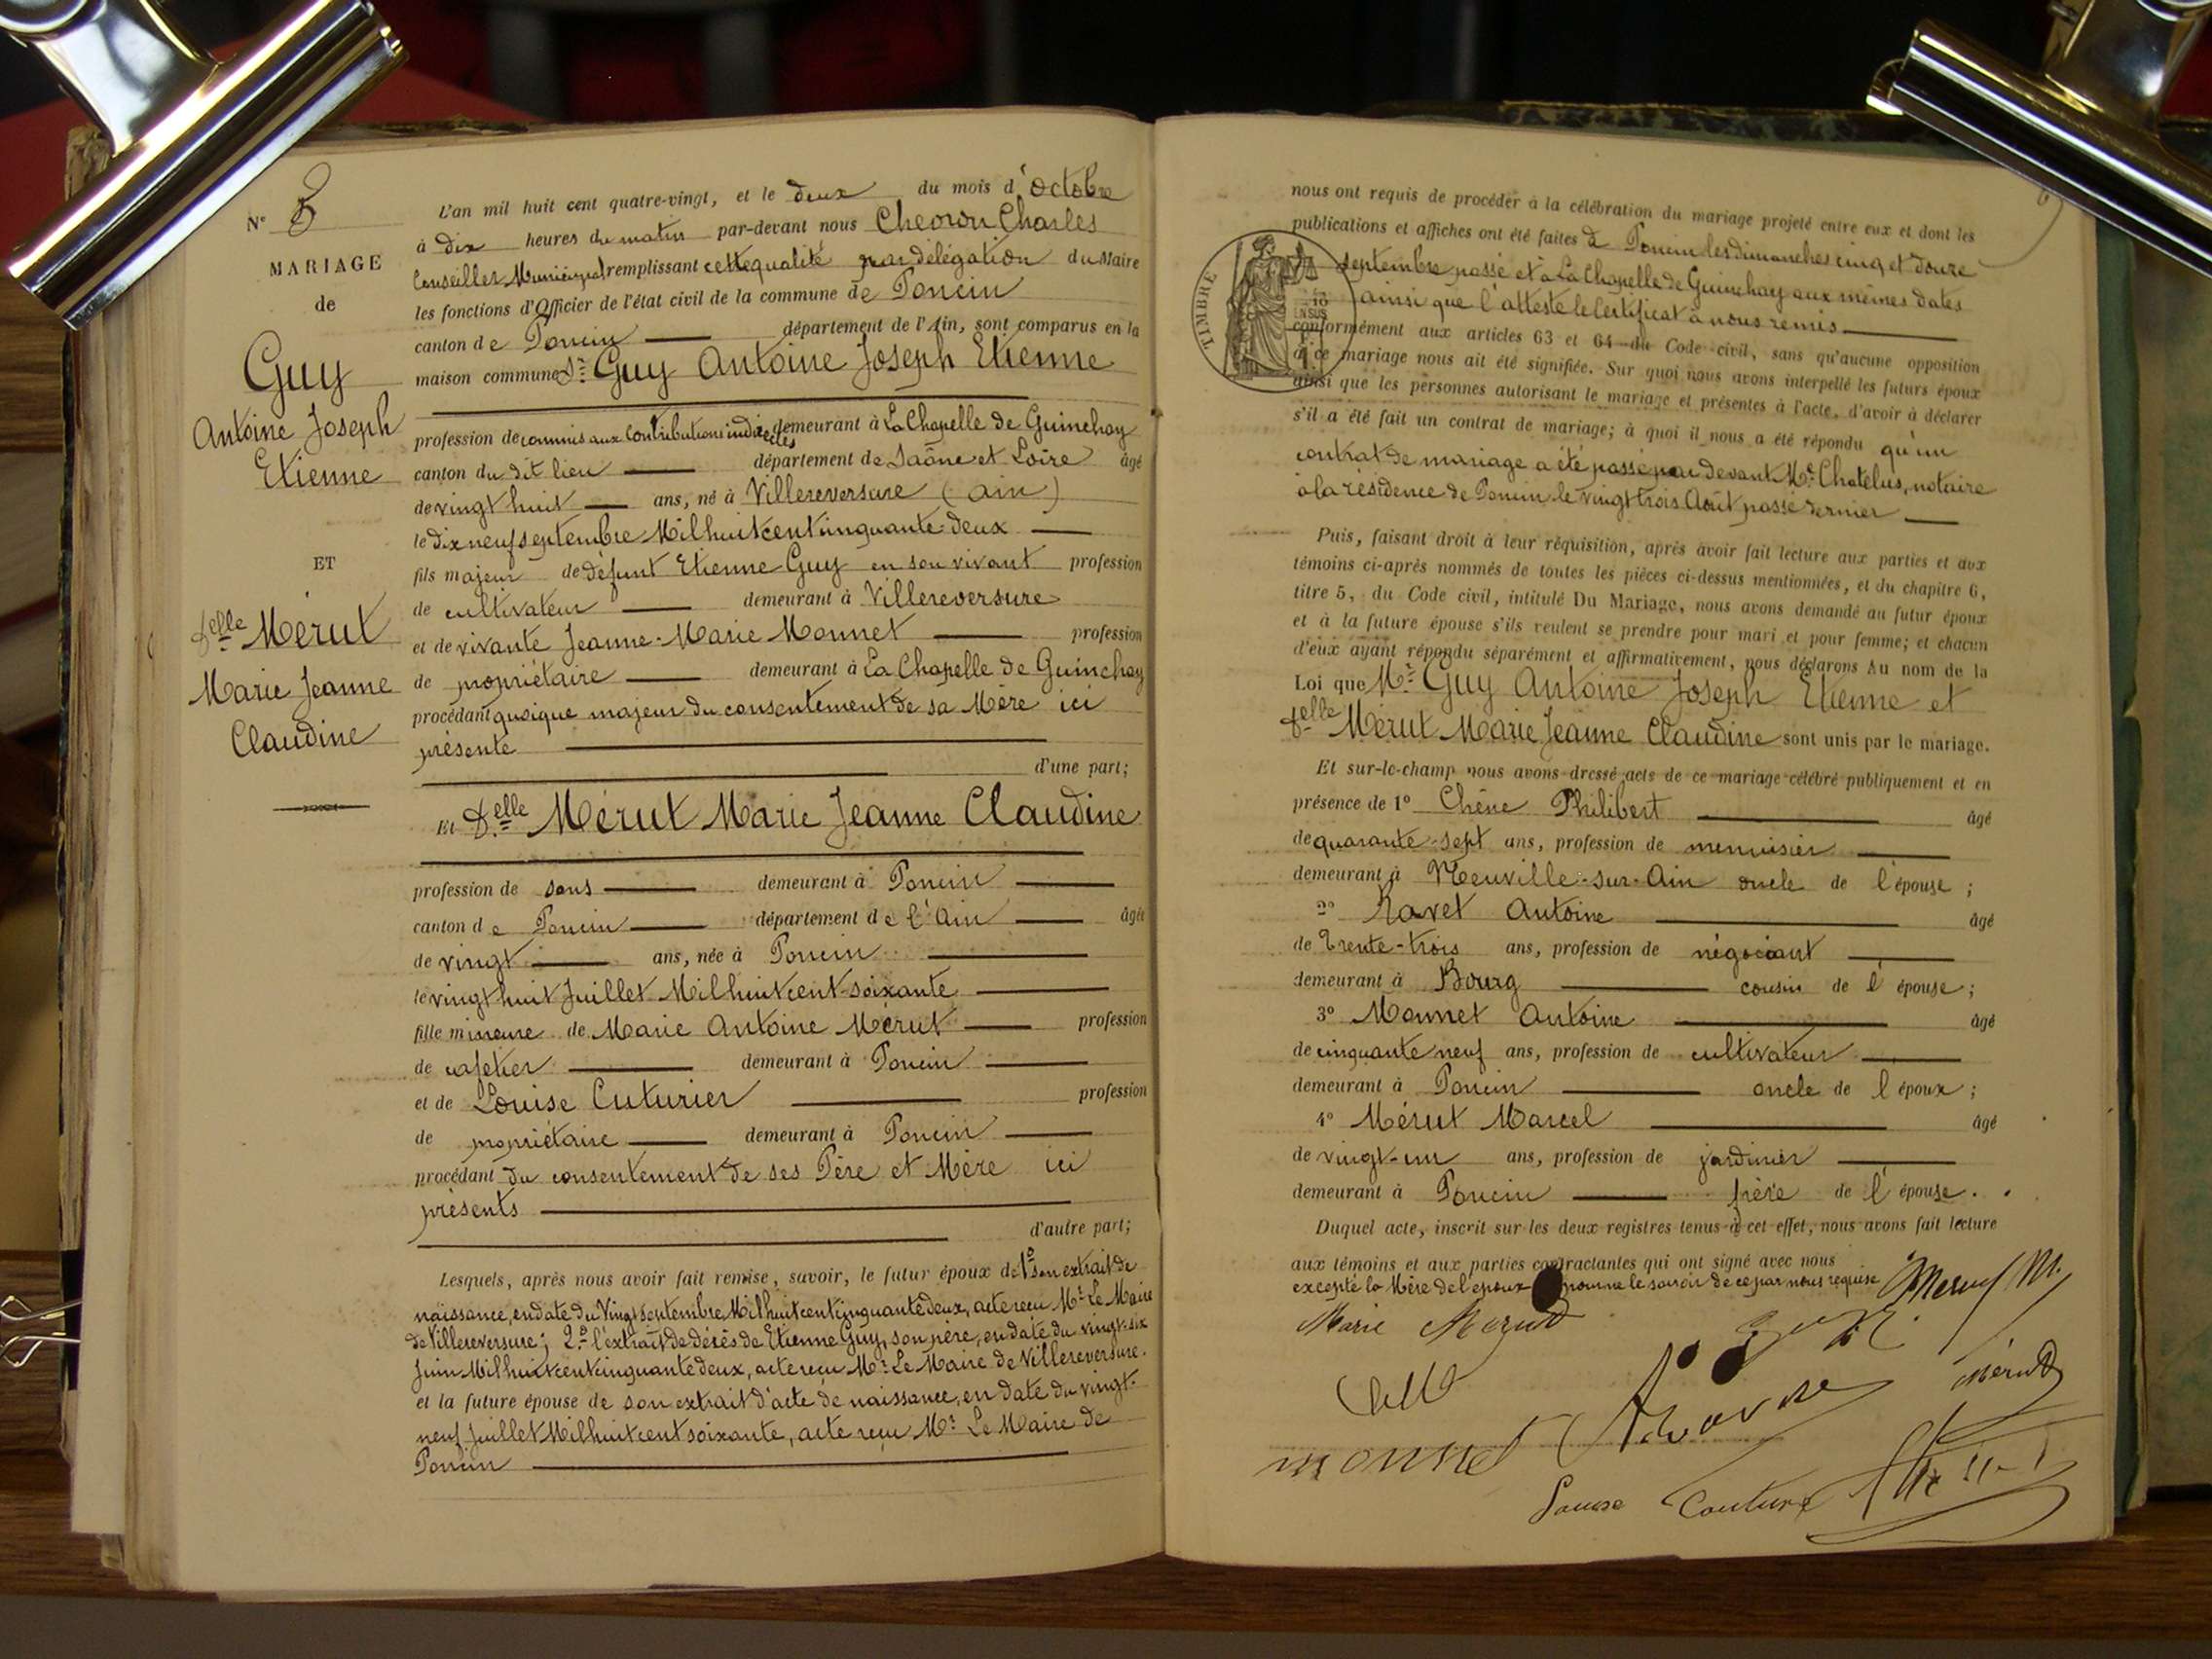 N° 8
MARIAGE
de
Guy
Antoine Joseph
Etienne
ET
Delle Mérut
Marie Jeanne
Claudine
L'an mil huit cent quatre-vingt, et le deux du mois d'octobre
à dix heures du matin par-devant nous Charles
Conseiller Municipal remplissant cette qualité par délégation du Maire
les fonctions d'Officier de l'état civil de la commune de Poncin
canton de Poncin département de l'Ain, sont comparus en la
maison commune Sr Guy Antoine Joseph Etienne
profession de commis aux Contributions indirectes demeurant à La Chapelle de Guinchay
canton du dit lieu département de Saône et Loire âgé
de vingt huit ans, né à Villereversure (ain)
le dix neuf septembre Mil huit cent cinquante-deux
fils majeur de défunt Etienne Guy en son vivant profession
de cultivateur demeurant à Villereversure
et de vivante Jeanne-Marie Monnet profession
de propriétaire demeurant à La Chapelle de Guinchay
procédant quoique majeur du consentement de sa Mère ici
présente
d'une part;
Et Delle Mérut Marie Jeanne Claudine
profession de sans demeurant à Poncin
canton de Poncin département de l'Ain âgée
de vingt ans, née à Poncin
le vingt huit Juillet Mil huit cent soixante
fille mineure de Marie Antoine Mérut profession
de cafetier demeurant à Poncin
et de Louise Cuturier profession
de propriétaire demeurant à Poncin
procédant du consentement de ses Père et Mère ici
présents
d'autre part;
Lesquels, après nous avoir fait remise, savoir, le futur époux de 1° son extrait de
naissance, en date du Vingt septembre Mil huit cent cinquante deux, acte reçu Mr Le Maire
de Villereversure; 2° l'extrait de décès de Etienne Guy, son père, en date du vingt-six
Juin Mil huit cent cinquante deux, acte reçu Mr Le Maire de Villereversure.
et la future épouse de son extrait d'acte de naissance, en date du vingt-
neuf Juillet Mil huit cent soixante, acte reçu Mr Le Maire de
Poncin
nous ont requis de procéder à la célébration du mariage projeté entre eux et dont les
publications et affiches ont été faites à Poncin les dimanches cinq et douze
septembre passé et à La Chapelle de Guinchay aux mêmes dates
ainsi que l'atteste le Certificat à nous remis
TIMBRE
conformément aux articles 63 et 64 du Code civil, sans qu'aucune opposition
à ce mariage nous ait été signifiée. Sur quoi nous avons interpellé les futurs époux
ainsi que les personnes autorisant le mariage et présentes à l'acte, d'avoir à déclarer
s'il a été fait un contrat de mariage; à quoi il nous a été répondu qu'un
contrat de mariage a été passé par devant Me Chatelus, notaire
à la résidence de Poncin le vingt trois Août passé dernier
Puis, faisant droit à leur réquisition, après avoir fait lecture aux parties et aux
témoins ci-après nommés de toutes les pièces ci-dessus mentionnées, et du chapitre 6,
titre 5, du Code civil, intitulé Du Mariage, nous avons demandé au futur époux
et à la future épouse s'ils veulent se prendre pour mari et pour femme; et chacun
d'eux ayant répondu séparément et affirmativement, nous déclarons Au nom de la
Loi que Mr Guy Antoine Joseph Etienne et
Delle Mérut Marie Jeanne Claudine sont unis par le mariage.
Et sur-le-champ nous avons dressé acte de ce mariage célébré publiquement et en
présence de 1° Chêne Philibert âgé
de quarante-sept ans, profession de menuisier
demeurant à Neuville-sur-Ain oncle de l'épouse;
2° Ravet Antoine âgé
de trente-trois ans, profession de négociant
demeurant à Bourg cousin de l'épouse;
3° Monnet Antoine âgé
de cinquante neuf ans, profession de cultivateur
demeurant à Poncin oncle de l'époux;
4° Mérut Marcel âgé
de vingt-un ans, profession de jardinier
demeurant à Poncin frère de l'épouse.
Duquel acte, inscrit sur les deux registres tenus à cet effet, nous avons fait lecture
aux témoins et aux parties contractantes qui ont signé avec nous
excepté la Mère de l'époux pour ne le savoir de ce par nous requise
Merut M.
Marie Merut
Guy
Mérut
monnet
Louise Couturie